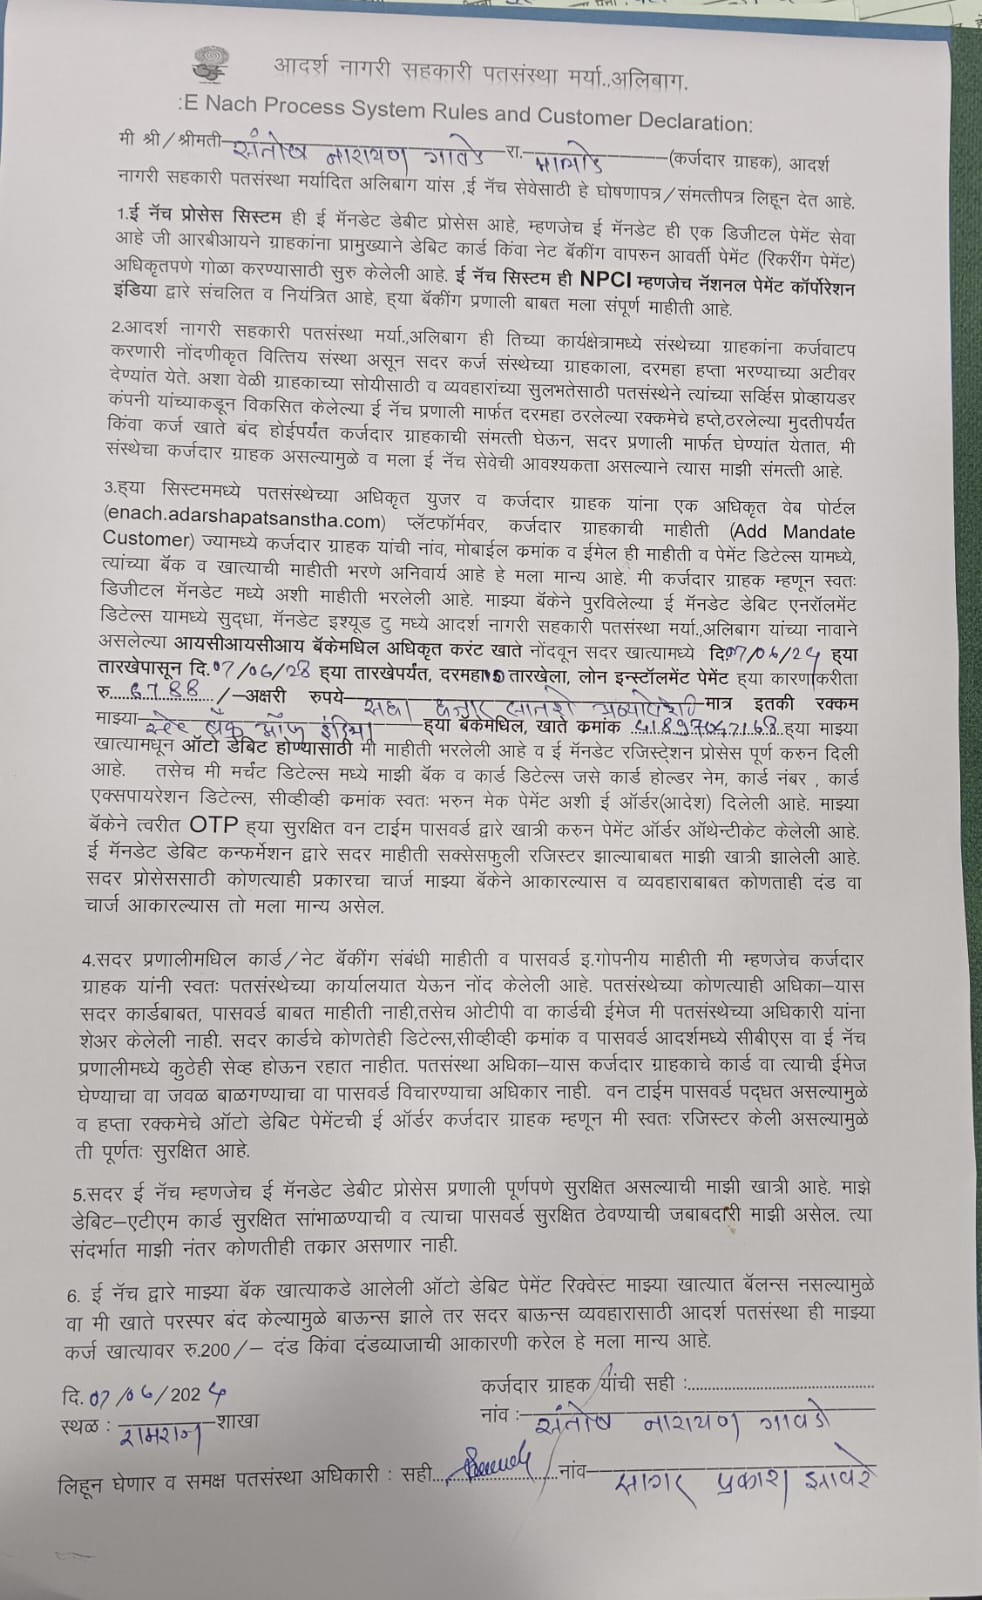 आदर्श नागरी सहकारी पतसंस्था मर्या.,अलिबाग.
:E Nach Process System Rules and Customer Declaration:
मी श्री/श्रीमती संतोष नारायण गावडे रा. (कर्जदार ग्राहक), आदर्श
नागरी सहकारी पतसंस्था मर्यादित अलिबाग यांस ,ई नॅच सेवेसाठी हे घोषणापत्र/संमत्तीपत्र लिहून देत आहे.
1.ई नॅच प्रोसेस सिस्टम ही ई मॅनडेट डेबीट प्रोसेस आहे, म्हणजेच ई मॅनडेट ही एक डिजीटल पेमेंट सेवा
आहे जी आरबीआयने ग्राहकांना प्रामुख्याने डेबिट कार्ड किंवा नेट बॅकींग वापरुन आवर्ती पेमेंट (रिकरींग पेमेंट)
अधिकृतपणे गोळा करण्यासाठी सुरु केलेली आहे. ई नॅच सिस्टम ही NPCI म्हणजेच नॅशनल पेमेंट कॉर्पोरेशन
इंडिया द्वारे संचलित व नियंत्रित आहे, ह्या बॅकींग प्रणाली बाबत मला संपूर्ण माहीती आहे.
2.आदर्श नागरी सहकारी पतसंस्था मर्या.,अलिबाग ही तिच्या कार्यक्षेत्रामध्ये संस्थेच्या ग्राहकांना कर्जवाटप
करणारी नोंदणीकृत वित्तिय संस्था असून सदर कर्ज संस्थेच्या ग्राहकाला, दरमहा हप्ता भरण्याच्या अटीवर
देण्यांत येते. अशा वेळी ग्राहकाच्या सोयीसाठी व व्यवहारांच्या सुलभतेसाठी पतसंस्थेने त्यांच्या सर्व्हिस प्रोव्हायडर
कंपनी यांच्याकडून विकसित केलेल्या ई नॅच प्रणाली मार्फत दरमहा ठरलेल्या रक्कमेचे हप्ते,ठरलेल्या मुदतीपर्यंत
किंवा कर्ज खाते बंद होईपर्यंत कर्जदार ग्राहकाची संमत्ती घेऊन, सदर प्रणाली मार्फत घेण्यांत येतात, मी
संस्थेचा कर्जदार ग्राहक असल्यामुळे व मला ई नॅच सेवेची आवश्यकता असल्याने त्यास माझी संमत्ती आहे.
3.ह्या सिस्टममध्ये पतसंस्थेच्या अधिकृत युजर व कर्जदार ग्राहक यांना एक अधिकृत वेब पोर्टल
(enach.adarshapatsanstha.com) प्लॅटफॉर्मवर, कर्जदार ग्राहकाची माहीती (Add Mandate
Customer) ज्यामध्ये कर्जदार ग्राहक यांची नांव, मोबाईल क्रमांक व ईमेल ही माहीती व पेमेंट डिटेल्स यामध्ये,
त्यांच्या बॅक व खात्याची माहीती भरणे अनिवार्य आहे हे मला मान्य आहे. मी कर्जदार ग्राहक म्हणून स्वतः
डिजीटल मॅनडेट मध्ये अशी माहीती भरलेली आहे. माझ्या बॅकेने पुरविलेल्या ई मॅनडेट डेबिट एनरॉलमेंट
डिटेल्स यामध्ये सुद्धा, मॅनडेट इश्यूड टु मध्ये आदर्श नागरी सहकारी पतसंस्था मर्या.,अलिबाग यांच्या नावाने
असलेल्या आयसीआयसीआय बॅकेमधिल अधिकृत करंट खाते नोंदवून सदर खात्यामध्ये दि.07/06/24 ह्या
तारखेपासून दि.07/06/28 ह्या तारखेपर्यंत, दरमहा तारखेला, लोन इन्स्टॉलमेंट पेमेंट ह्या कारणाकरीता
रु. 6788 /-अक्षरी रुपये सहा हजार सातशे अठ्ठ्याऐंशी मात्र इतकी रक्कम
माझ्या स्टेट बँक ऑफ इंडिया ह्या बॅकेमधिल, खाते क्रमांक ह्या माझ्या
खात्यामधून ऑटो डेबिट होण्यासाठी मी माहीती भरलेली आहे व ई मॅनडेट रजिस्ट्रेशन प्रोसेस पूर्ण करुन दिली
आहे. तसेच मी मर्चंट डिटेल्स मध्ये माझी बॅक व कार्ड डिटेल्स जसे कार्ड होल्डर नेम, कार्ड नंबर , कार्ड
एक्सपायरेशन डिटेल्स, सीव्हीव्ही क्रमांक स्वतः भरुन मेक पेमेंट अशी ई ऑर्डर(आदेश) दिलेली आहे. माझ्या
बॅकेने त्वरीत OTP ह्या सुरक्षित वन टाईम पासवर्ड द्वारे खात्री करुन पेमेंट ऑर्डर ऑथेन्टीकेट केलेली आहे.
ई मॅनडेट डेबिट कन्फर्मेशन द्वारे सदर माहीती सक्सेसफुली रजिस्टर झाल्याबाबत माझी खात्री झालेली आहे.
सदर प्रोसेससाठी कोणत्याही प्रकारचा चार्ज माझ्या बॅकेने आकारल्यास व व्यवहाराबाबत कोणताही दंड वा
चार्ज आकारल्यास तो मला मान्य असेल.
4.सदर प्रणालीमधिल कार्ड/नेट बॅकींग संबंधी माहीती व पासवर्ड इ.गोपनीय माहीती मी म्हणजेच कर्जदार
ग्राहक यांनी स्वतः पतसंस्थेच्या कार्यालयात येऊन नोंद केलेली आहे. पतसंस्थेच्या कोणत्याही अधिका-यास
सदर कार्डबाबत, पासवर्ड बाबत माहीती नाही,तसेच ओटीपी वा कार्डची ईमेज मी पतसंस्थेच्या अधिकारी यांना
शेअर केलेली नाही. सदर कार्डचे कोणतेही डिटेल्स,सीव्हीव्ही क्रमांक व पासवर्ड आदर्शमध्ये सीबीएस वा ई नॅच
प्रणालीमध्ये कुठेही सेव्ह होऊन रहात नाहीत. पतसंस्था अधिका-यास कर्जदार ग्राहकाचे कार्ड वा त्याची ईमेज
घेण्याचा वा जवळ बाळगण्याचा वा पासवर्ड विचारण्याचा अधिकार नाही. वन टाईम पासवर्ड पद्धत असल्यामुळे
व हप्ता रक्कमेचे ऑटो डेबिट पेमेंटची ई ऑर्डर कर्जदार ग्राहक म्हणून मी स्वतः रजिस्टर केली असल्यामुळे
ती पूर्णतः सुरक्षित आहे.
5.सदर ई नॅच म्हणजेच ई मॅनडेट डेबीट प्रोसेस प्रणाली पूर्णपणे सुरक्षित असल्याची माझी खात्री आहे. माझे
डेबिट-एटीएम कार्ड सुरक्षित सांभाळण्याची व त्याचा पासवर्ड सुरक्षित ठेवण्याची जबाबदारी माझी असेल. त्या
संदर्भात माझी नंतर कोणतीही तकार असणार नाही.
6. ई नॅच द्वारे माझ्या बॅक खात्याकडे आलेली ऑटो डेबिट पेमेंट रिक्वेस्ट माझ्या खात्यात बॅलन्स नसल्यामुळे
वा मी खाते परस्पर बंद केल्यामुळे बाऊन्स झाले तर सदर बाऊन्स व्यवहारासाठी आदर्श पतसंस्था ही माझ्या
कर्ज खात्यावर रु.200/- दंड किंवा दंडव्याजाची आकारणी करेल हे मला मान्य आहे.
दि.07/06/2024
कर्जदार ग्राहक यांची सही :
स्थळ : रामराज शाखा
नांव : संतोष नारायण गावडे
लिहून घेणार व समक्ष पतसंस्था अधिकारी : सही नांव सागर प्रकाश झावरे